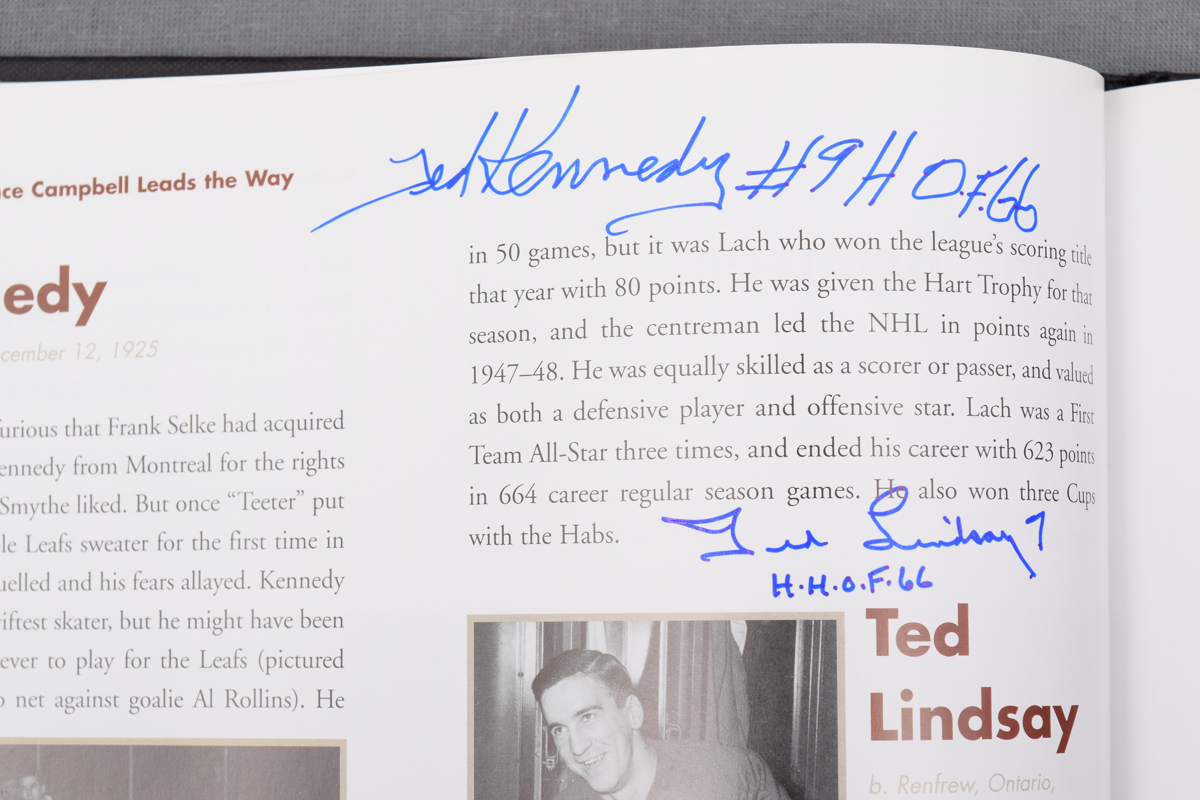 Ted Kennedy #9 H O.F. 66
ce Campbell Leads the Way
edy
cember 12, 1925
urious that Frank Selke had acquired
ennedy from Montreal for the rights
Smythe liked. But once “Teeter” put
le Leafs sweater for the first time in
uelled and his fears allayed. Kennedy
iftest skater, but he might have been
ever to play for the Leafs (pictured
o net against goalie Al Rollins). He
in 50 games, but it was Lach who won the league’s scoring title
that year with 80 points. He was given the Hart Trophy for that
season, and the centreman led the NHL in points again in
1947–48. He was equally skilled as a scorer or passer, and valued
as both a defensive player and offensive star. Lach was a First
Team All-Star three times, and ended his career with 623 points
in 664 career regular season games. He also won three Cups
with the Habs.
Ted Lindsay 7
H.H.O.F. 66
Ted
Lindsay
b. Renfrew, Ontario,